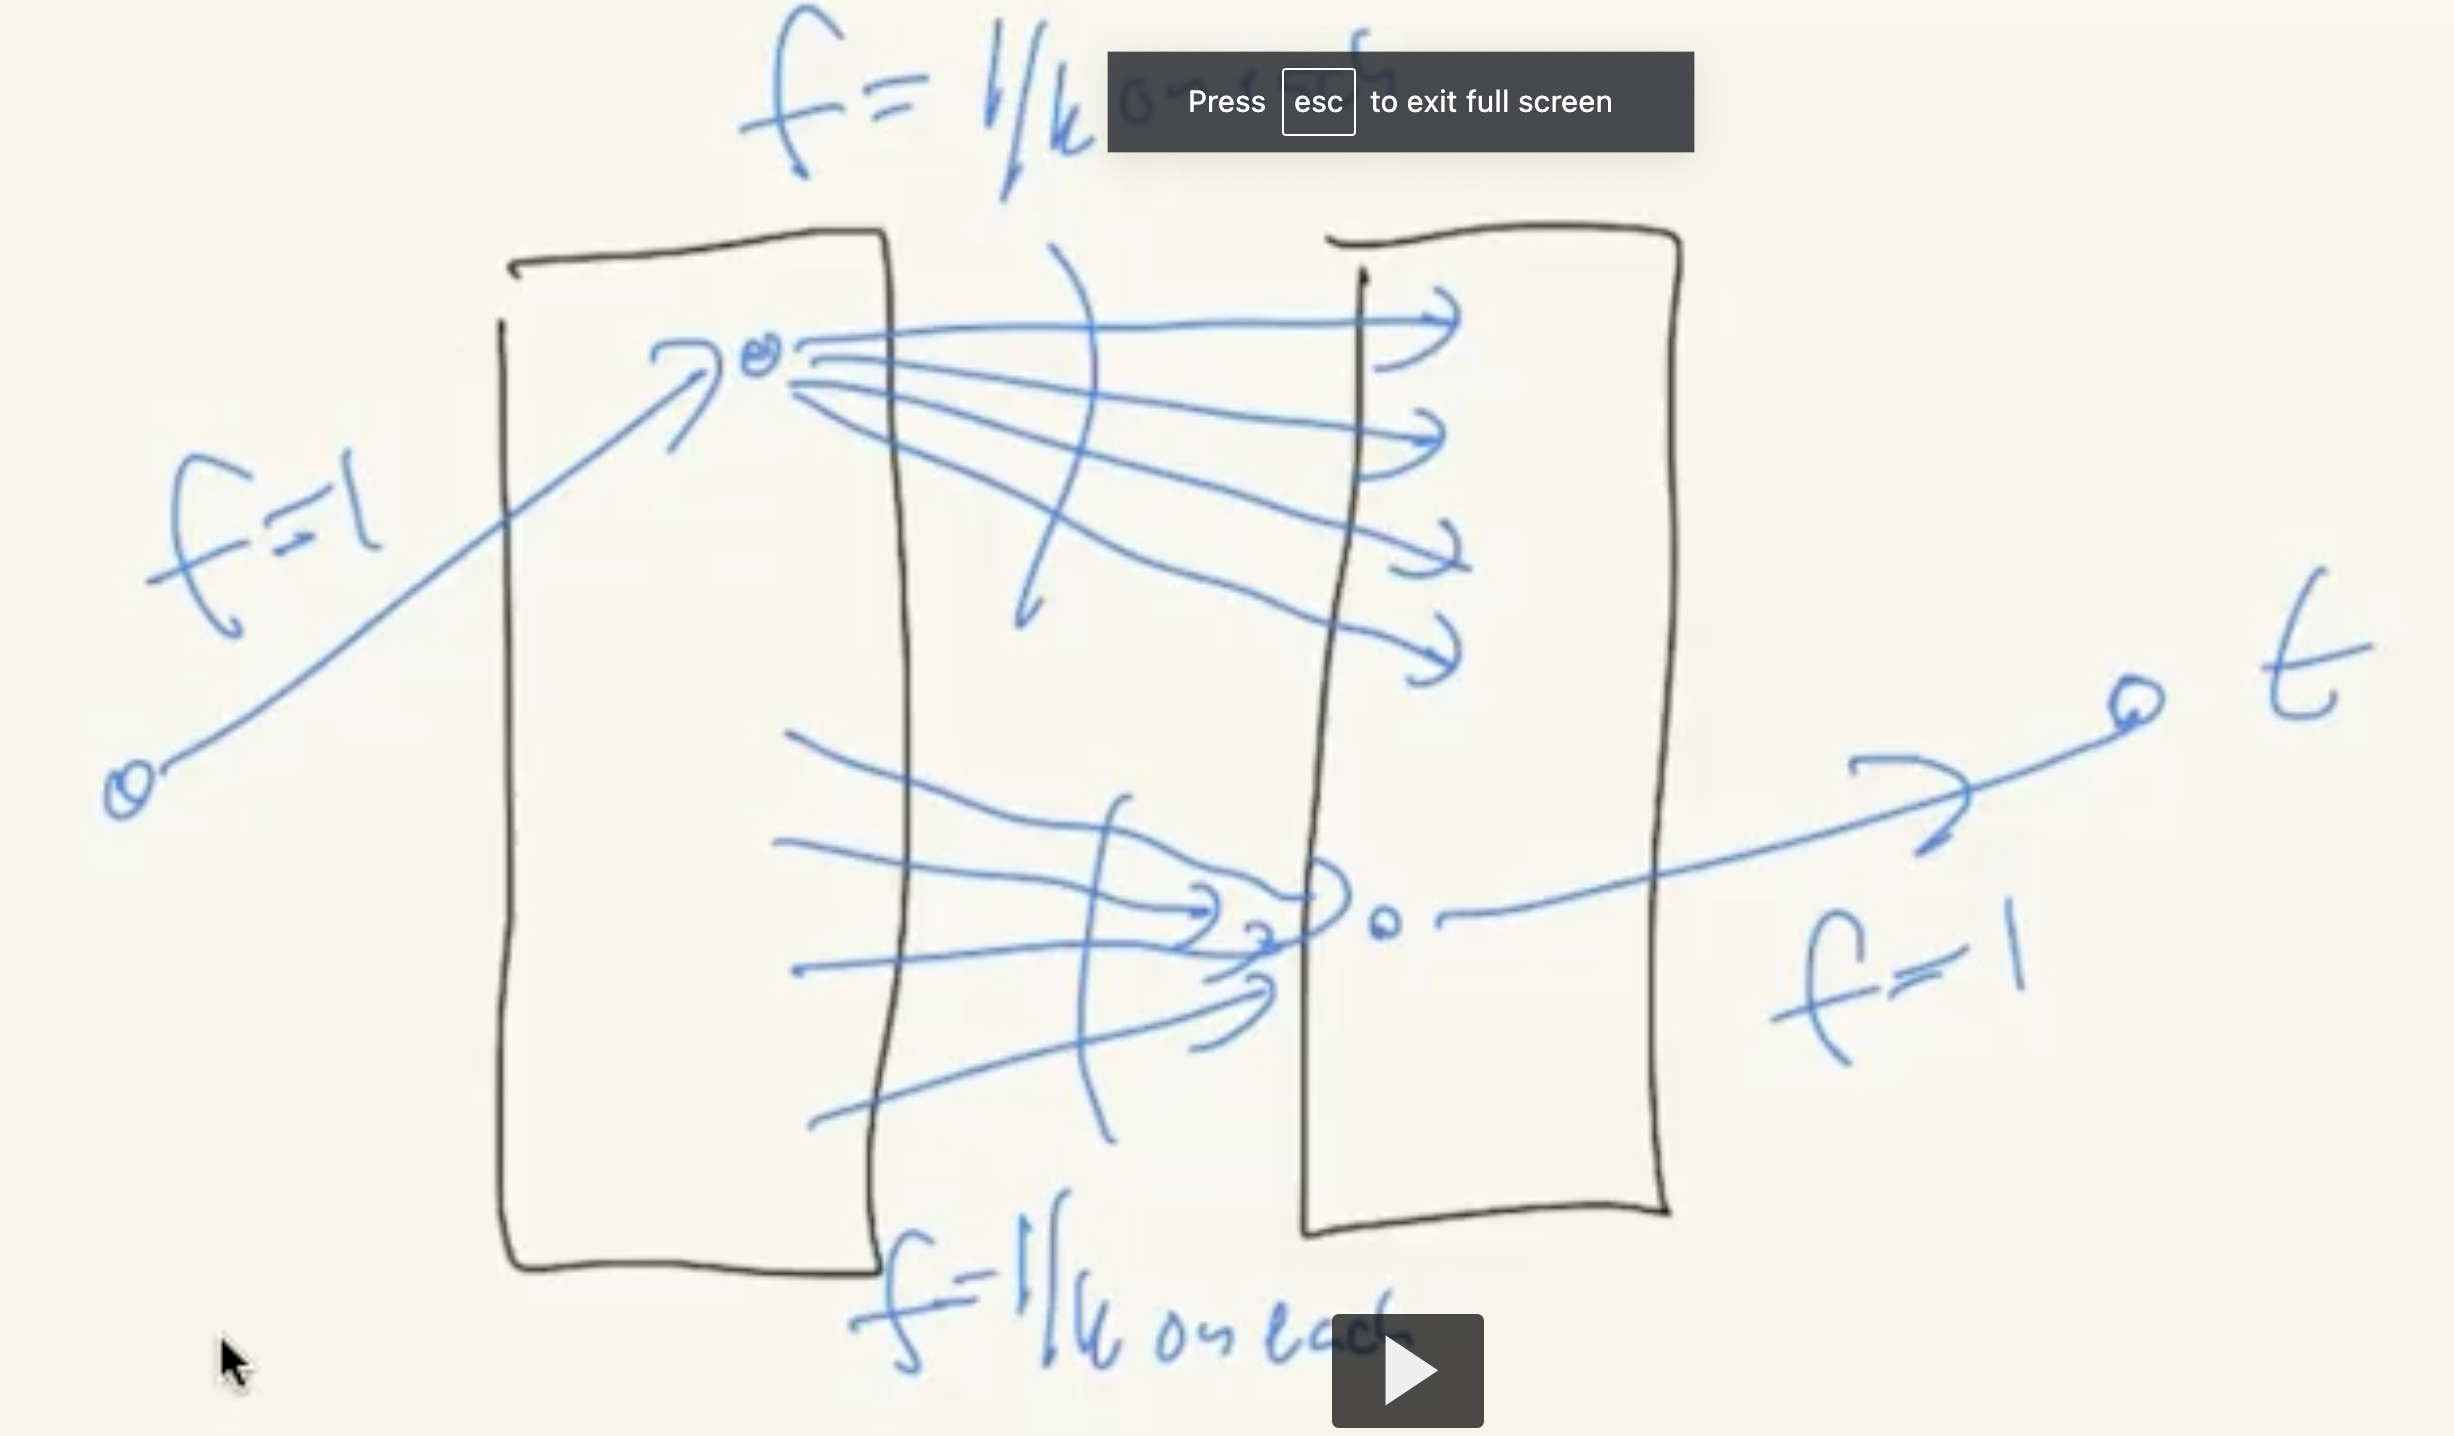 f = 1/k on each
Press esc to exit full screen
f=1
t
f=1
f=1/k on each